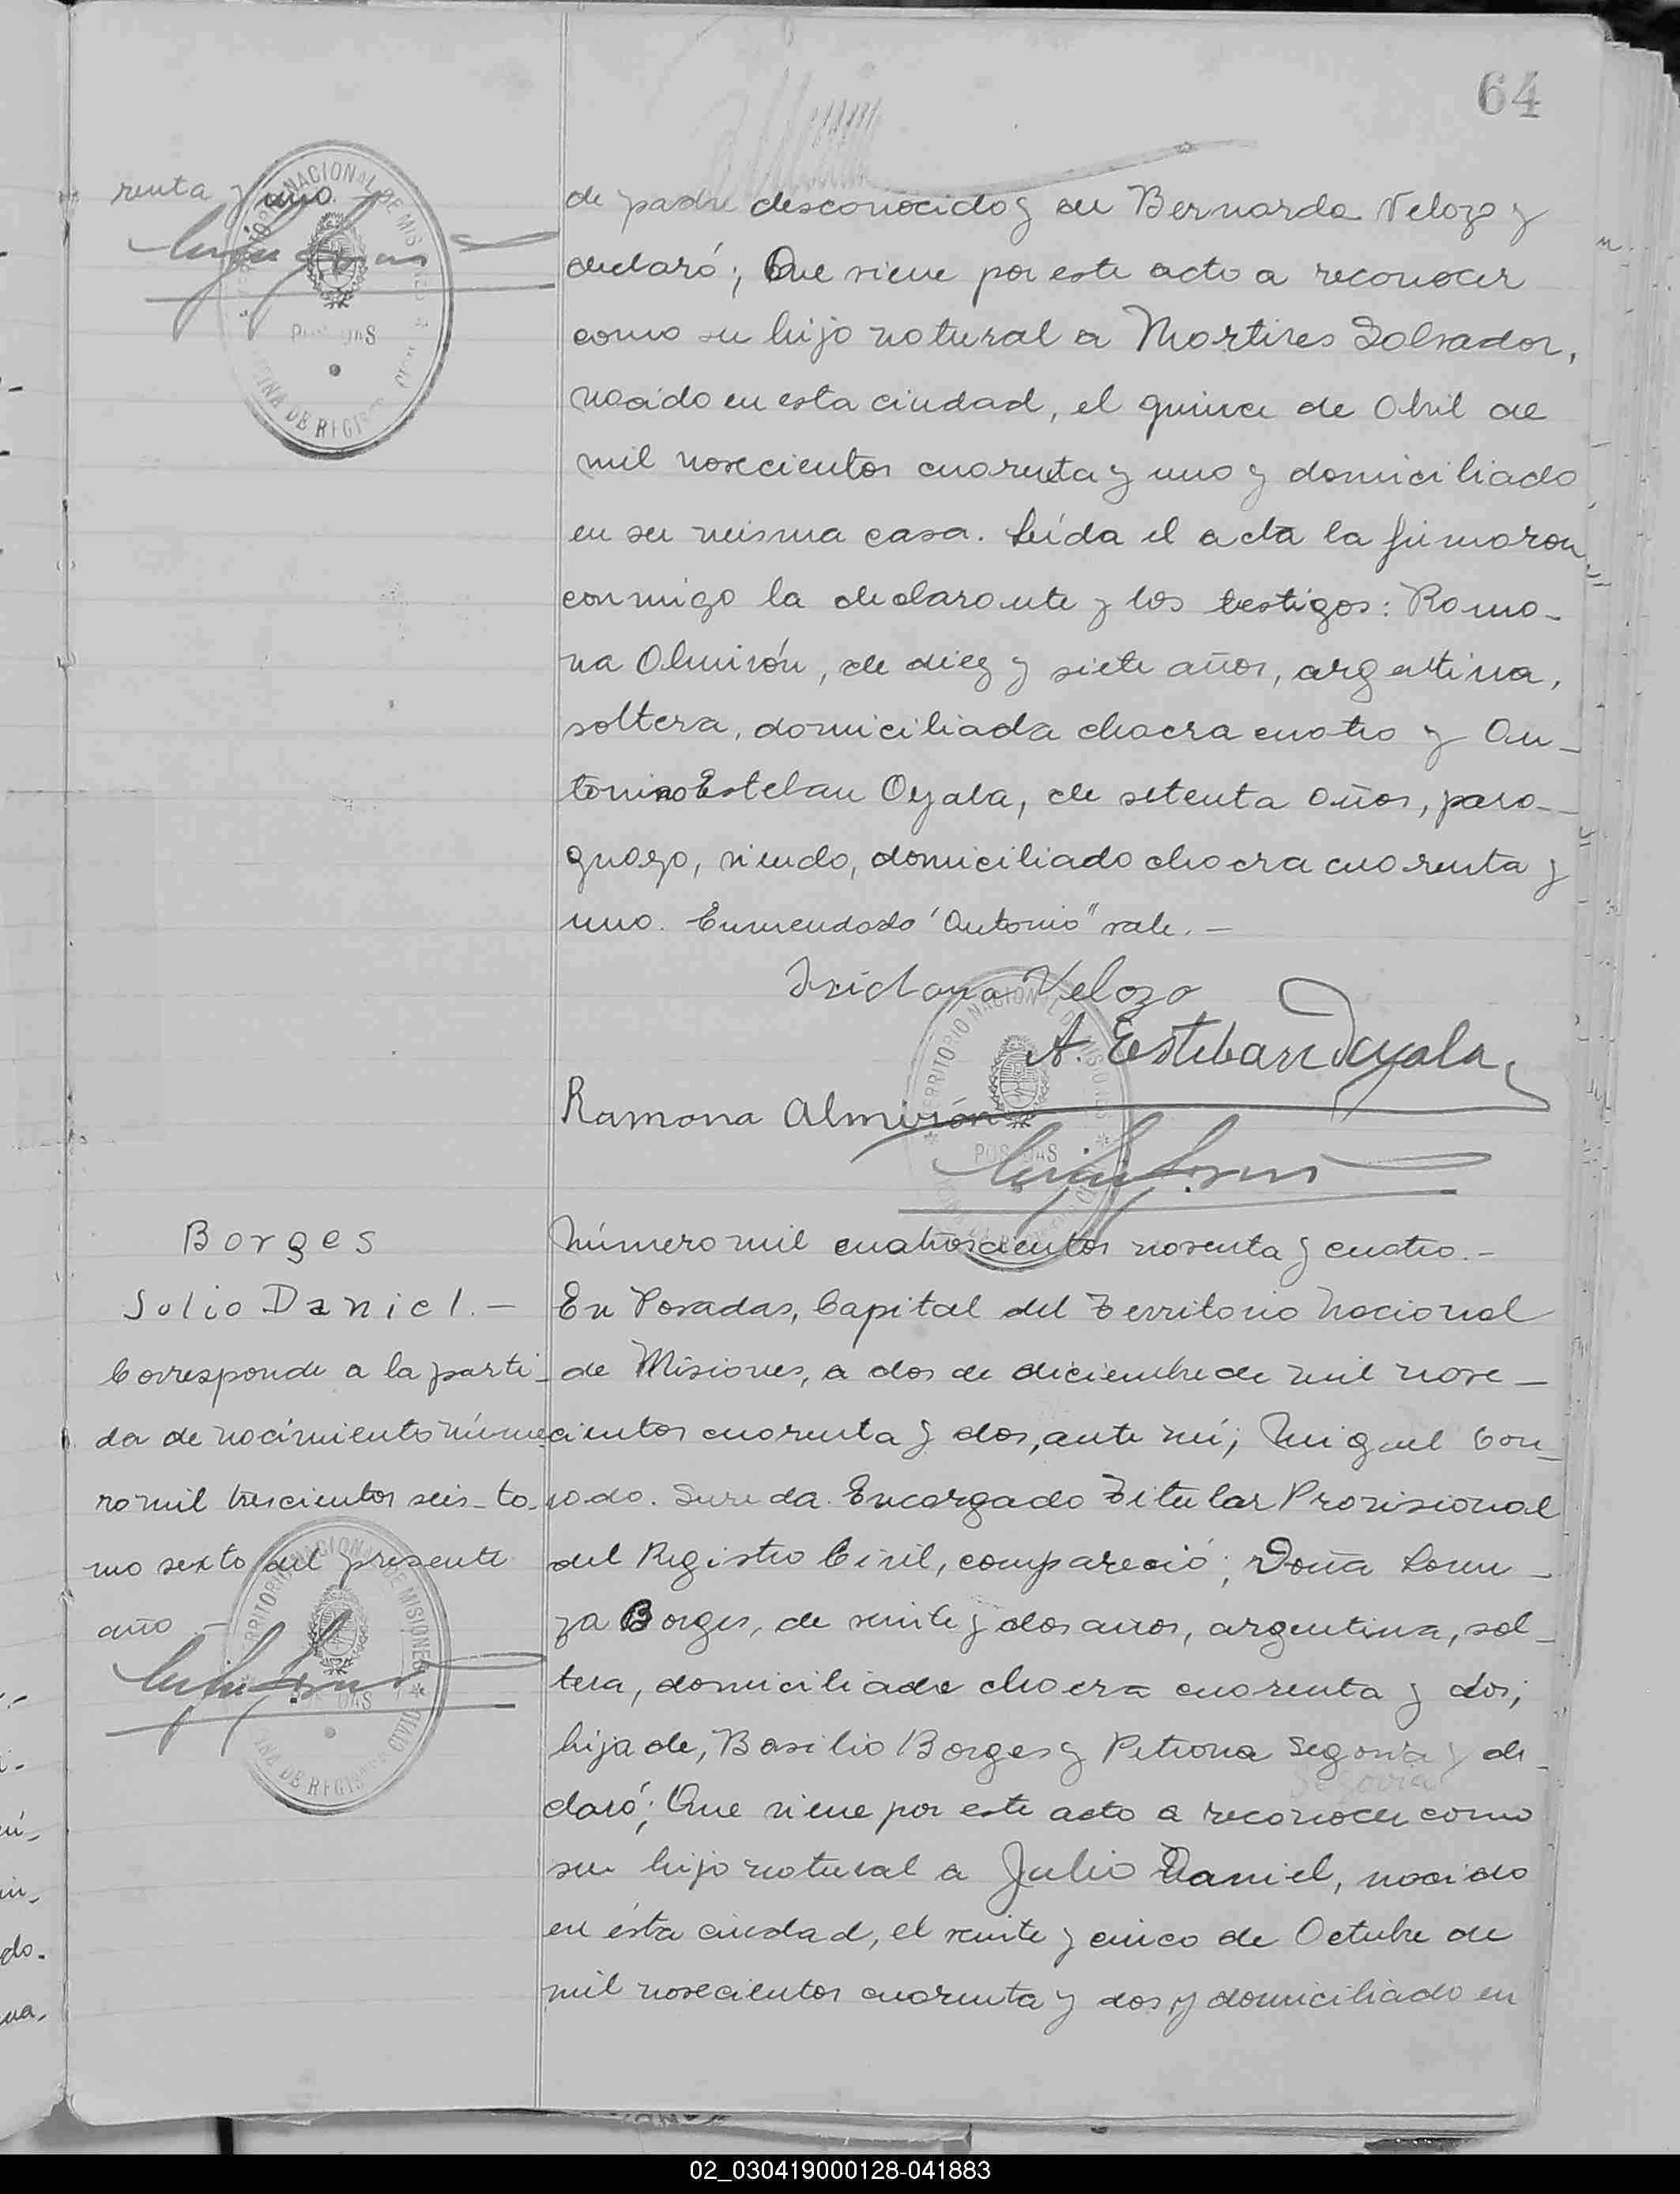 64
renta y uno
de padre desconocido y de Bernarda Velozo y
declaró; Que viene por este acto a reconocer
como su hijo natural a Martires Salvador,
nacido en esta ciudad, el quince de Abril de
mil novecientos cuarenta y uno y domiciliado
en su misma casa. Leída el acta la firmaron
conmigo la declarante y los testigos: Ramo-
na Almirón, de diez y siete años, argentina,
soltera, domiciliada chacra cuatro y An-
tonino Esteban Ayala, de setenta años, para-
guayo, viudo, domiciliado chacra cuarenta y
uno. Enmendado "Antonio" vale.-
Velozo
A. Esteban Ayala
Ramona Almirón
TERRITORIO NACIONAL DE MISIONES
POSADAS
Borges
Julio Daniel.-
Corresponde a la parti-
da de nacimiento núme-
ro mil trescientos seis - to-
mo sexto del presente
año.-
TERRITORIO NACIONAL DE MISIONES
OFICINA DE REGISTRO CIVIL
Número mil cuatroscientos noventa y cuatro.-
En Posadas, Capital del Territorio Nacional
de Misiones, a dos de diciembre de mil nove-
cientos cuarenta y dos, ante mí; Miguel Con-
rado. Sureda. Encargado Titular Provisional
del Registro Civil, compareció; Doña Loren-
za Borges, de veinte y dos años, argentina, sol-
tera, domiciliada chacra cuarenta y dos;
hija de, Basilio Borges y Petrona Segovia y de-
Segovia
claró; Que viene por este acto a reconocer como
su hijo natural a Julio Daniel, nacido
en ésta ciudad, el veinte y cinco de Octubre de
mil novecientos cuarenta y dos y domiciliado en
02_030419000128-041883